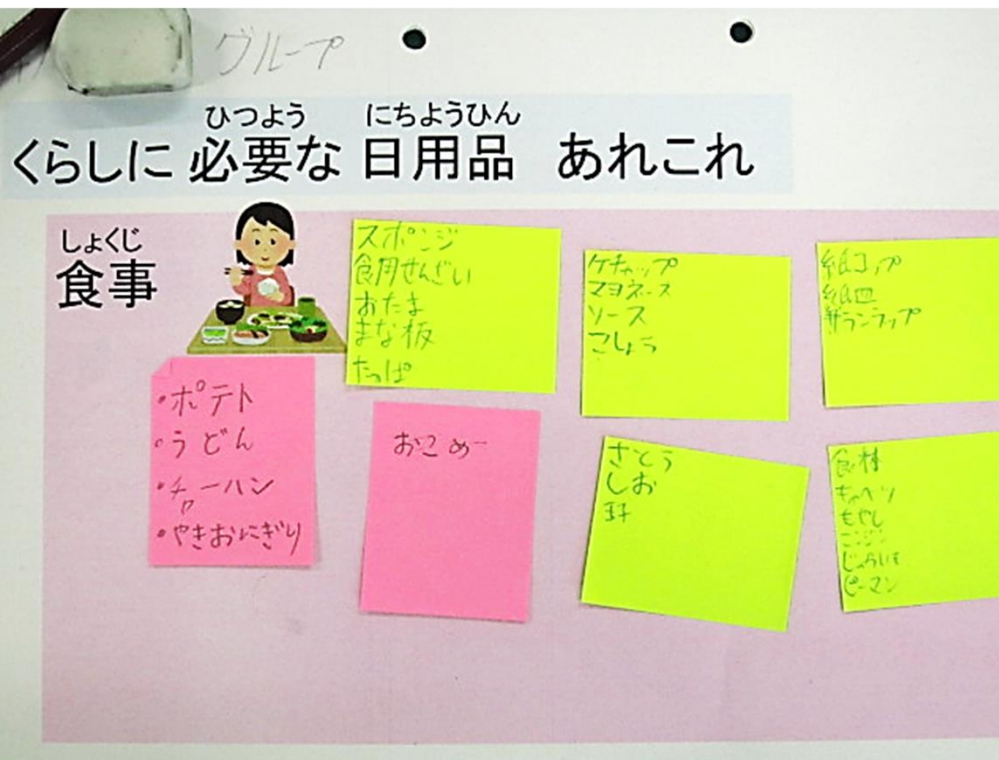 グループ
ひつよう にちようひん
くらしに 必要な 日用品 あれこれ
しょくじ
食事
スポンジ
食用せんざい
おたま
まな板
たっぱ
ケチャップ
マヨネーズ
ソース
こしょう
紙コップ
紙皿
サランラップ
・ポテト
・うどん
・チャーハン
・やきおにぎり
おこめー
さとう
しお
食材
キャベツ
もやし
ニンジン
じゃがいも
ピーマン